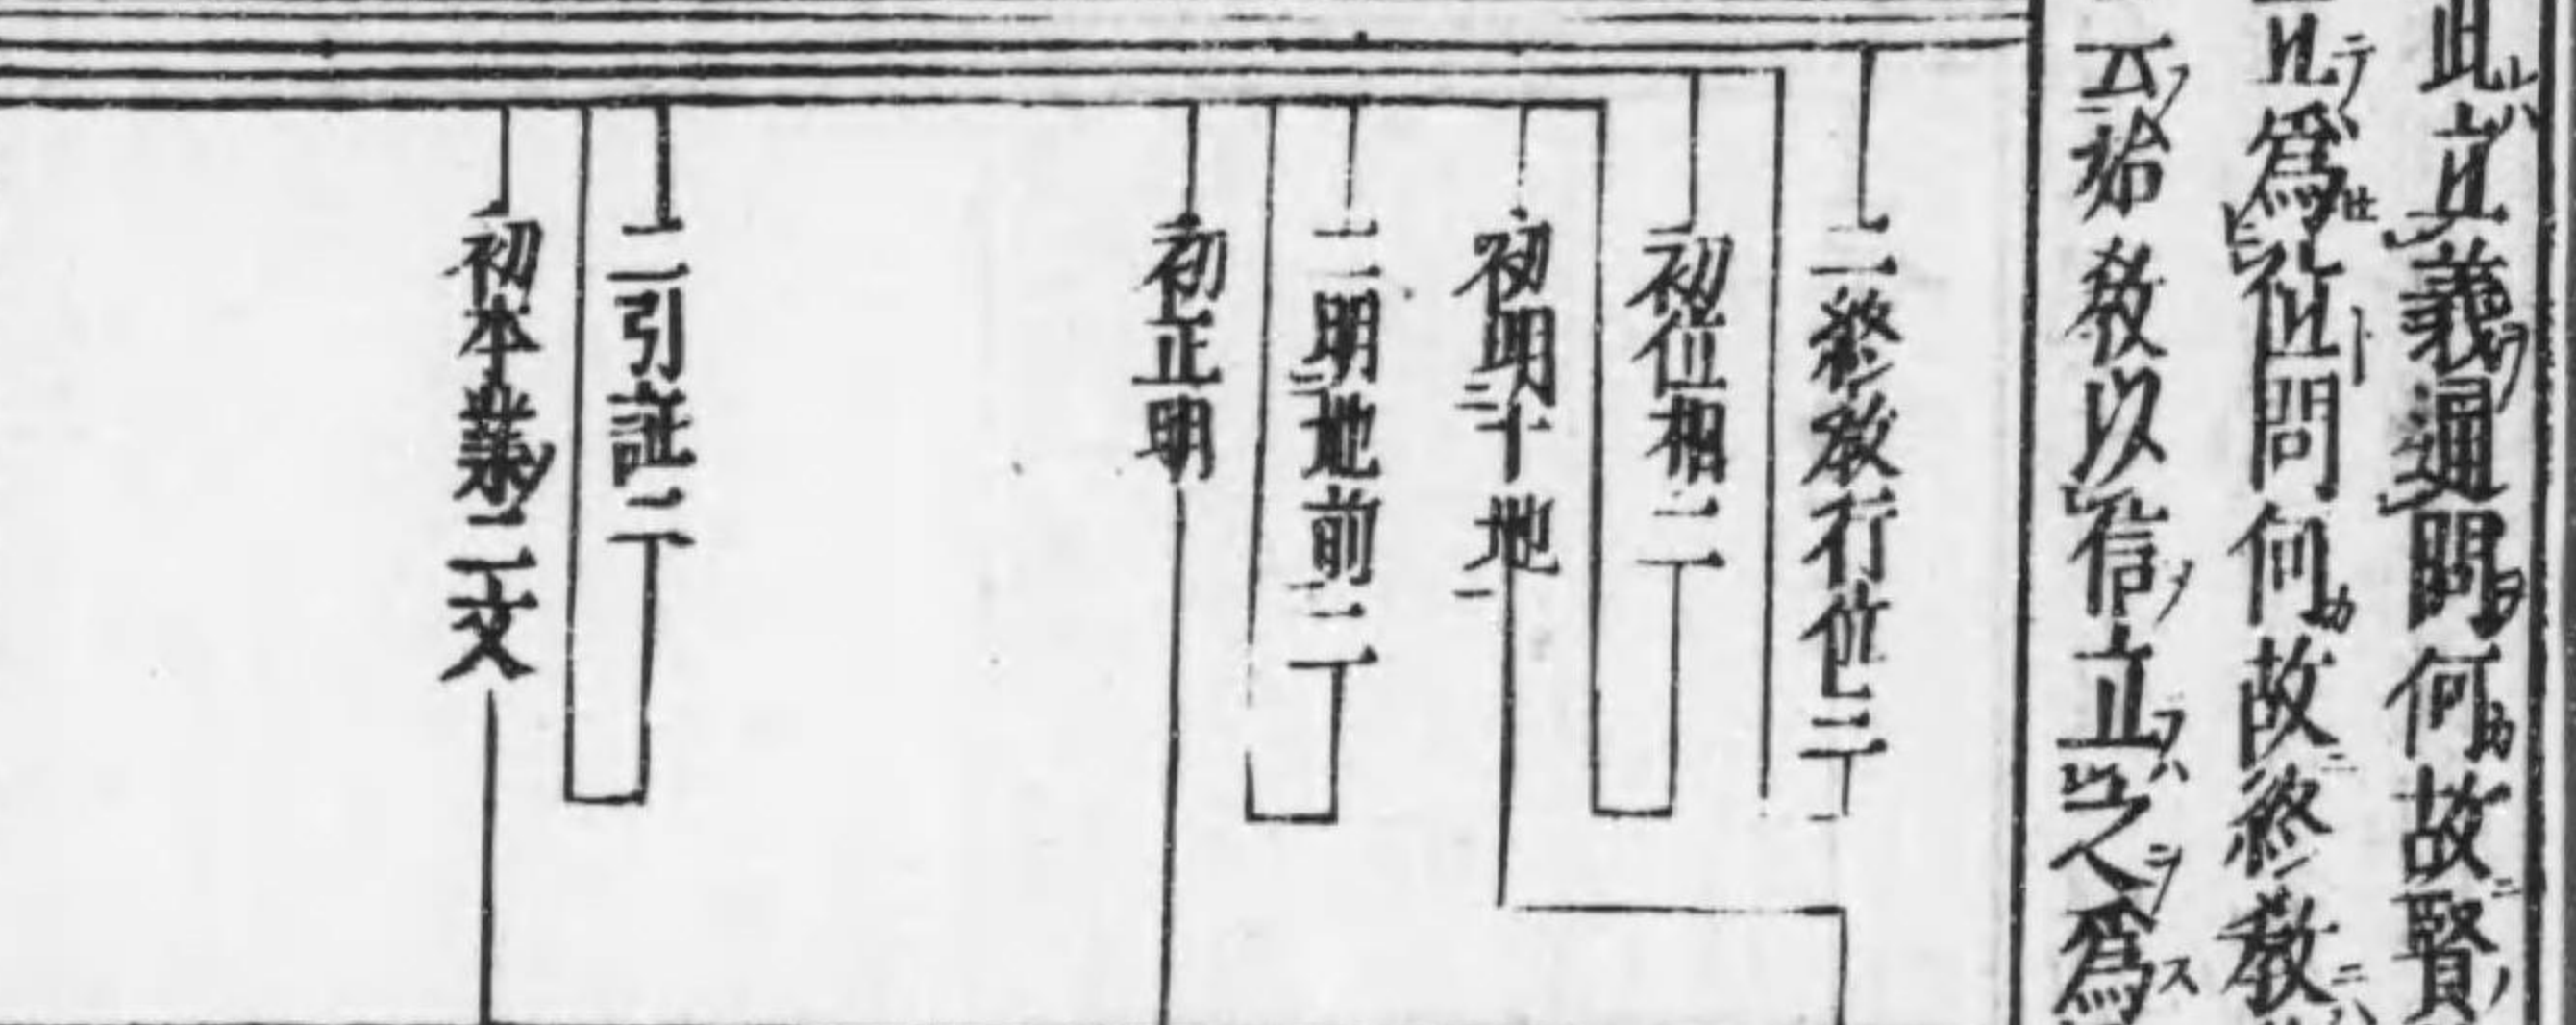 此立義通問何故賢
爲位問何故終教
云始教以信立之爲
二終教行位三
初位相二
初明十地
二明地前二
初正明
二引証二
初本業二文